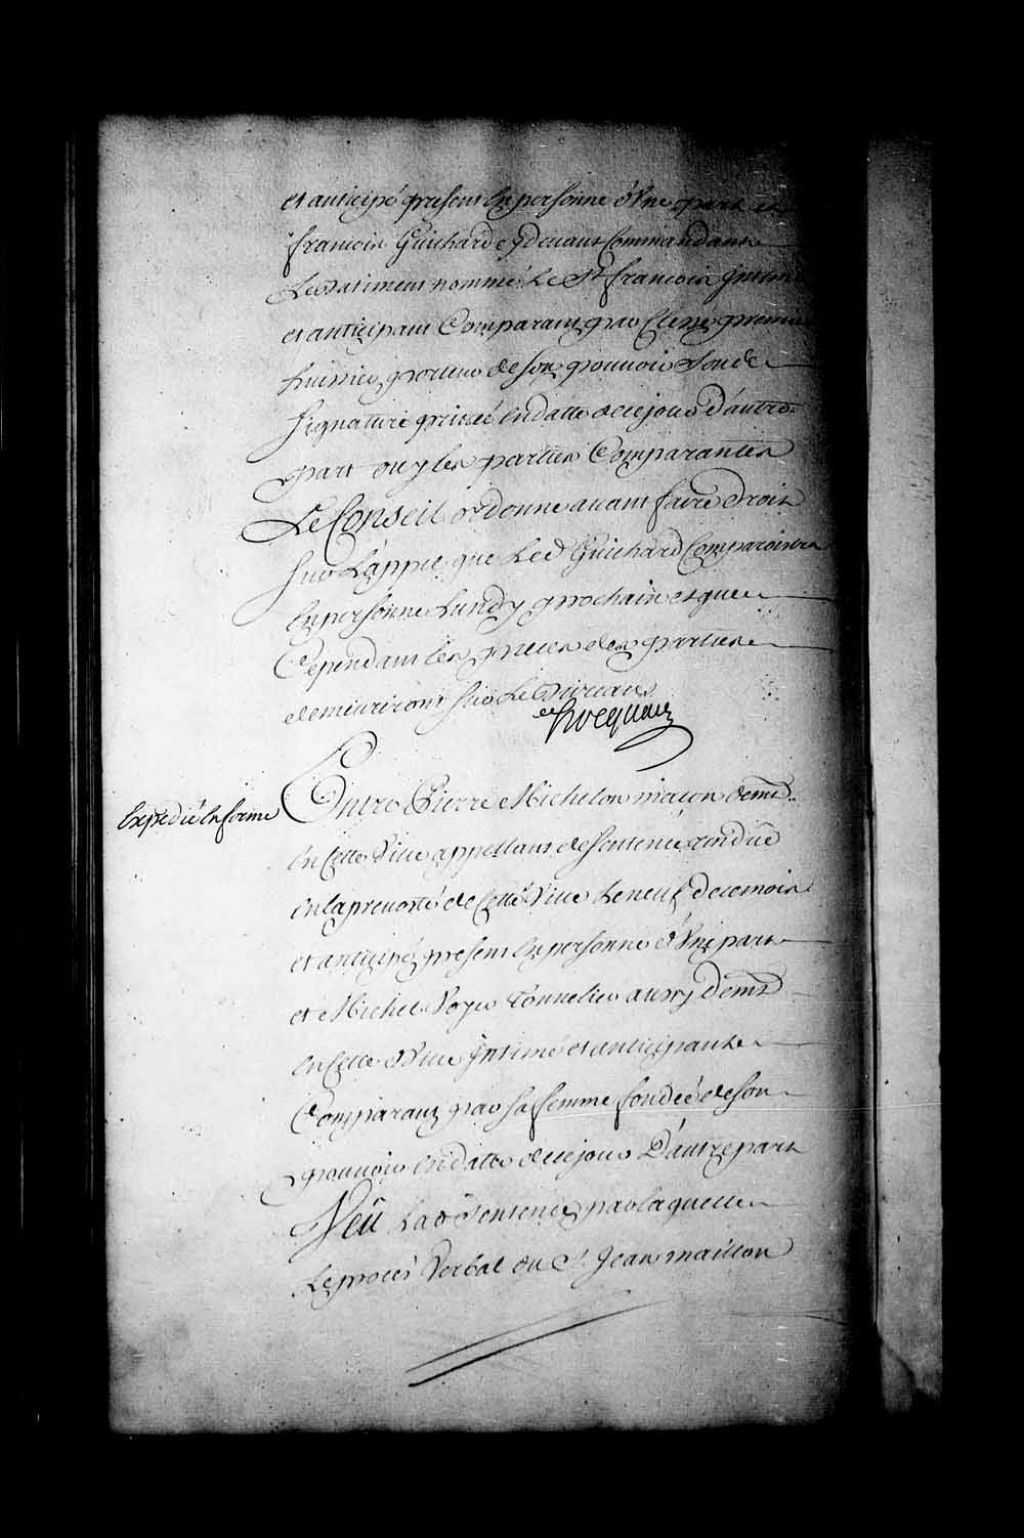 et anticipé present En personne d'Une part et
francois Guichard cy devant Commandant
Le Batiment nommé Le St. francois Intimé
et anticipant Comparant par Clesse premier
huissier, porteur de son pouvoir Sous
Signature privée En datte de ce jour d'autre
part ouy les parties Comparantes
Le Conseil ordonne avant faire droit
Sur L'appel que Led. Guichard Comparoistra
En personne Lundy prochain et que
Cependant les pieces des parties
demeureront sur Le Bureau
hocquart
Expedié En forme
Entre Pierre Michelon macon demt.
En Cette Ville appellant de Sentence rendüe
En la prevosté de Cette Ville Le neuf de ce mois
et anticipé, present En personne d'Une part
et Michel Voyer Tonnelier aussy demt.
En Cette Ville Intimé et anticipant
Comparant par Sa femme fondée de son
pouvoir En datte de ce jour D'autre part
Veu Lad. Sentence, par laquelle
Le procés Verbal du Sr. Jean maillou